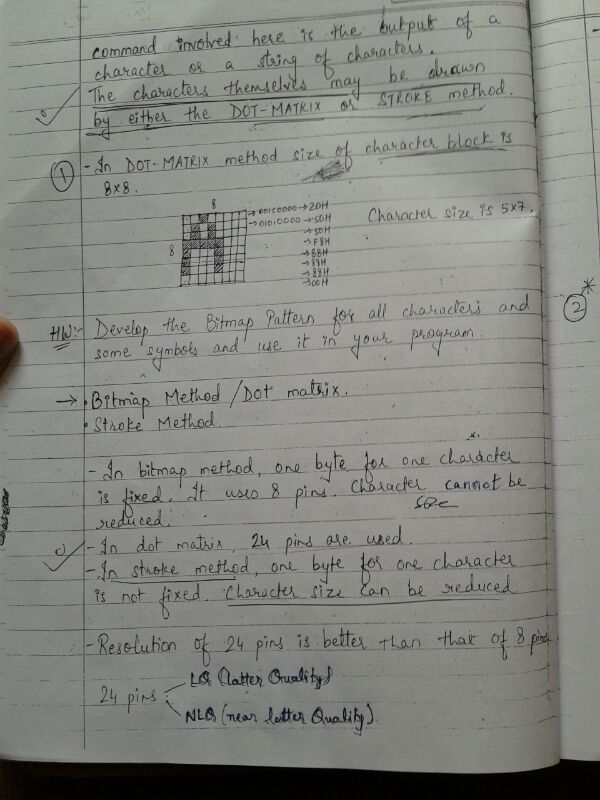 command involved here is the output of a
character or a string of characters.
The characters themselves may be drawn
by either the DOT-MATRIX or STROKE method.
1 - In DOT-MATRIX method size of character block is
8x8.
8
8
00100000 → 20H
01010000 → 50H
→ 50H
→ F8H
→ 88H
→ 88H
→ 88H
→ 00H
Character size is 5x7.
2 *
HW:- Develop the Bitmap Pattern for all characters and
some symbols and use it in your program.
→ • Bitmap Method / DOT matrix.
• Stroke Method
- In bitmap method, one byte for one character
is fixed. It uses 8 pins. Character cannot be
size
reduced.
- In dot matrix, 24 pins are used.
- In stroke method, one byte for one character
is not fixed. Character size can be reduced
- Resolution of 24 pins is better than that of 8 pins
24 pins
LQ (latter Quality)
NLQ (near latter Quality).